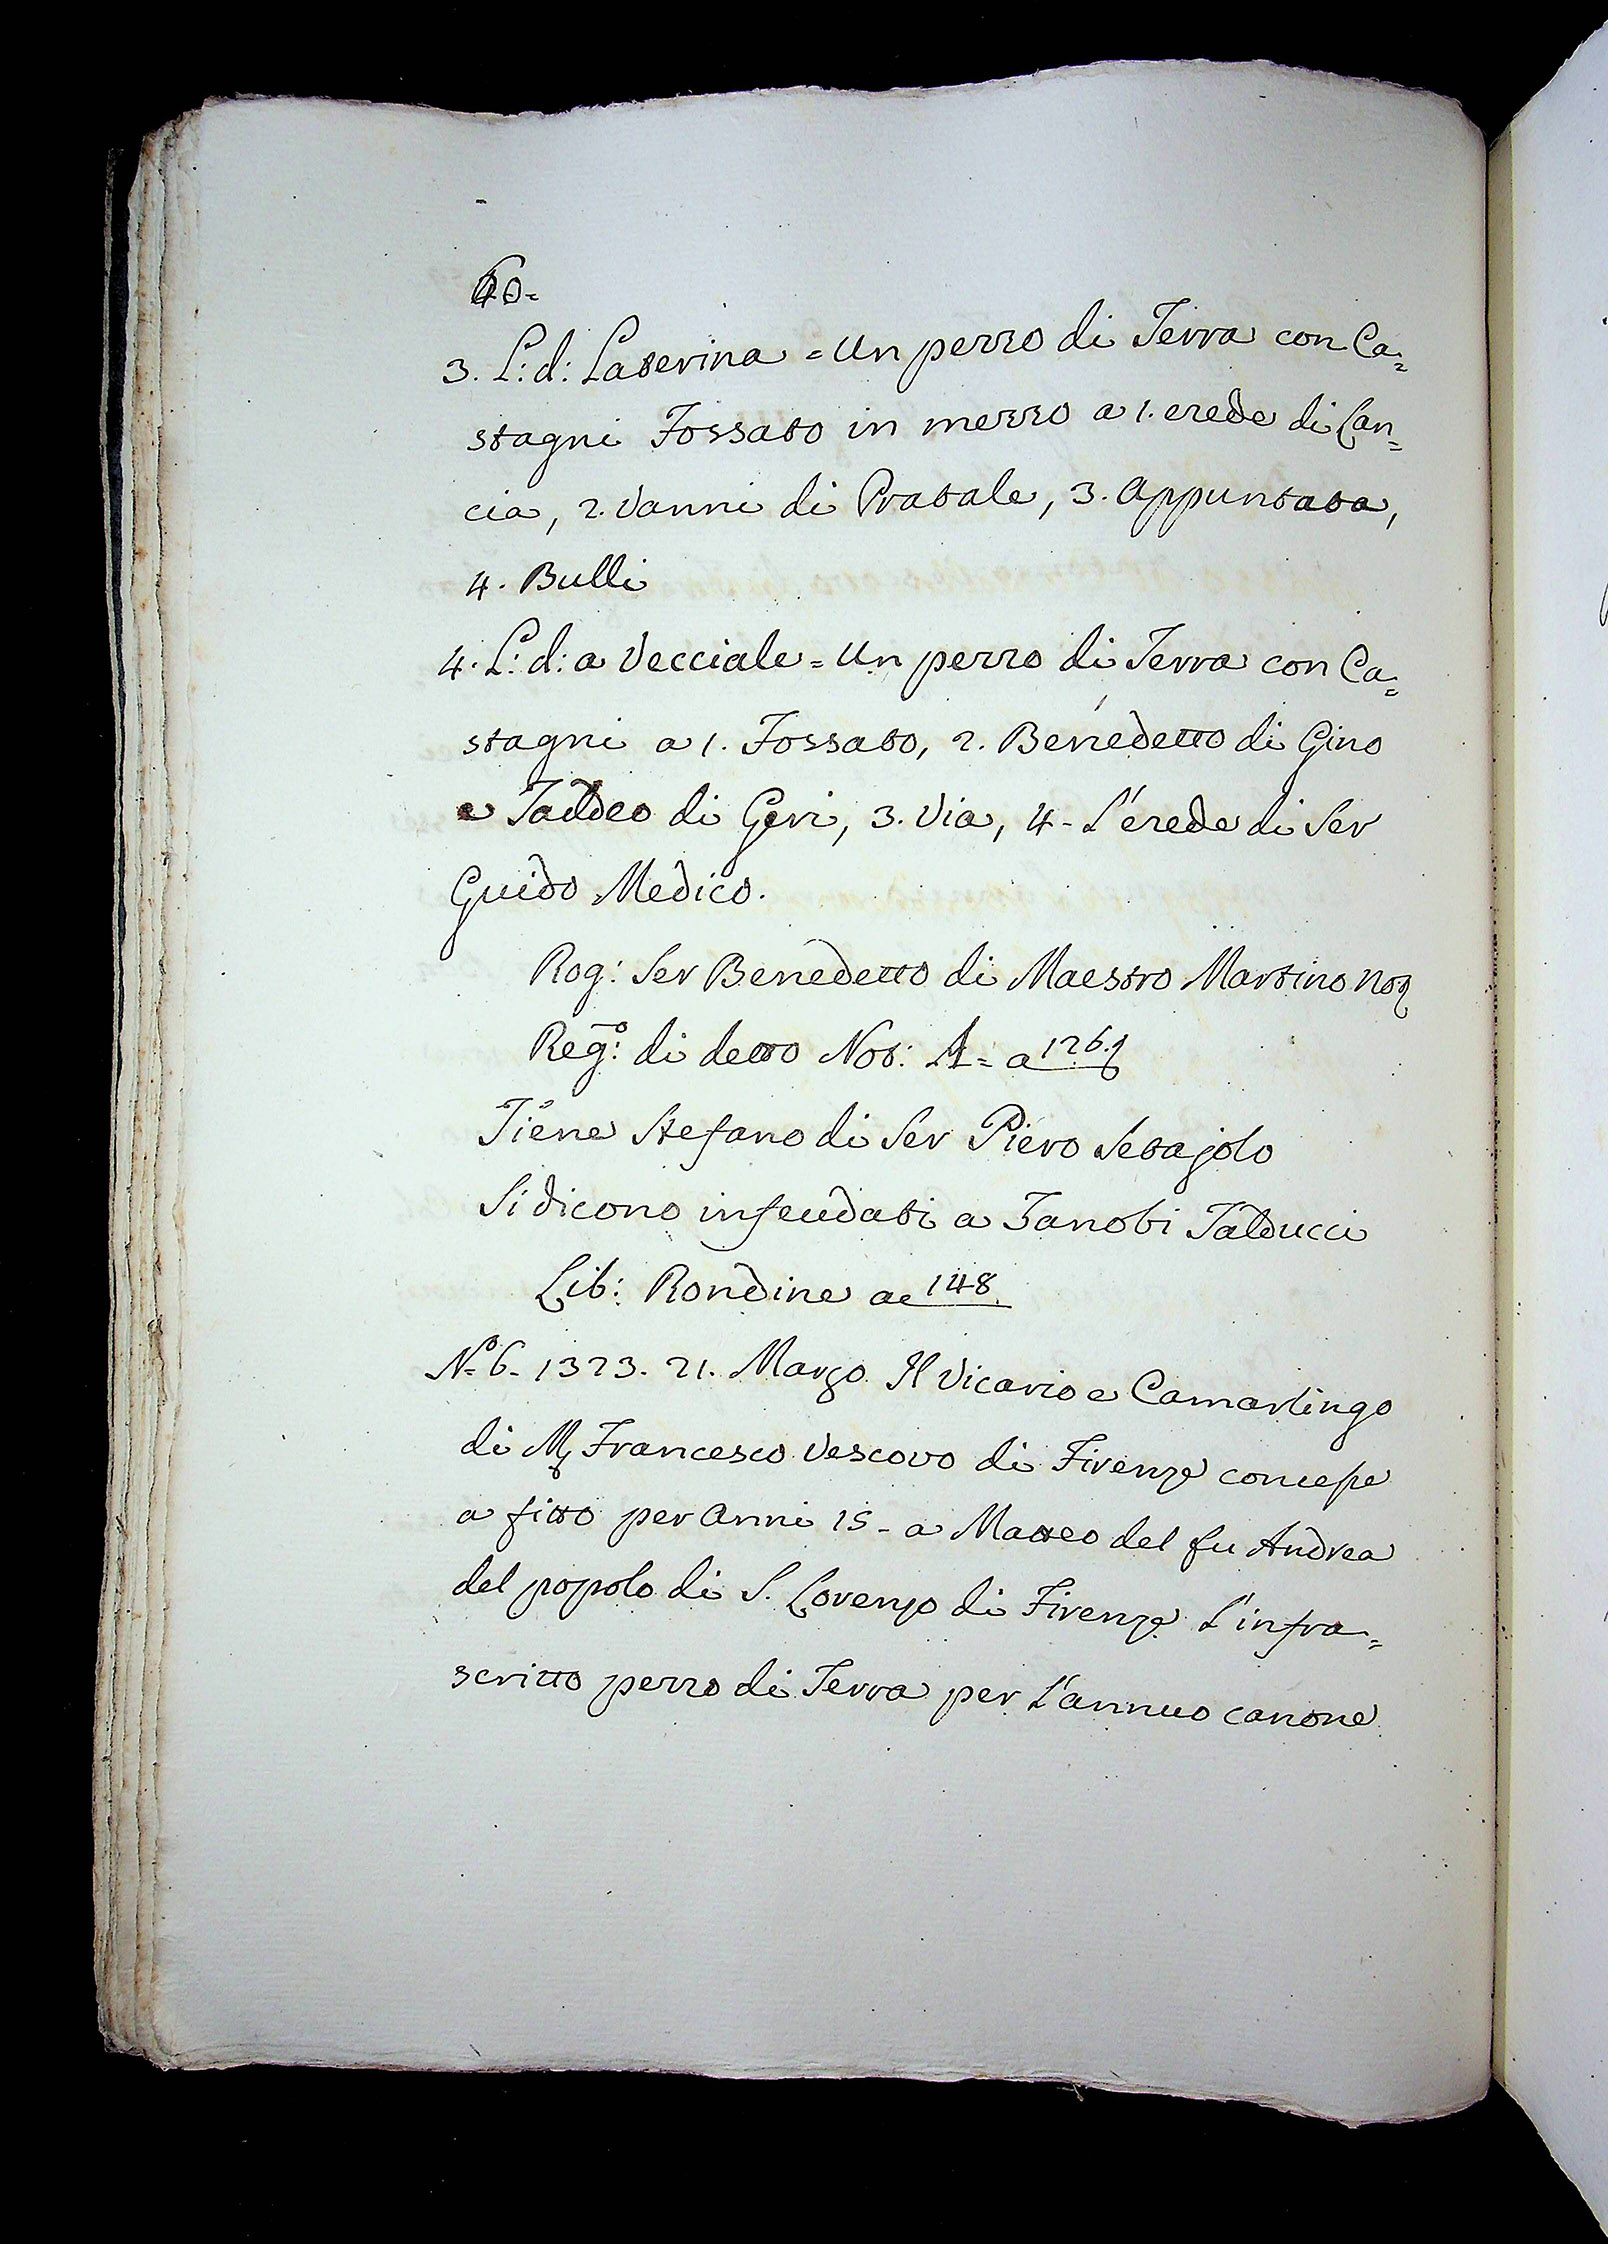 60=
3. L: d: Laterina = Un pezzo di Terra con Ca=
stagni Fossato in mezzo a 1. erede di Can=
cia, 2. Vanni di Pratale, 3. Appuntata,
4. Bulli
4. L: d: a Vecciale = Un pezzo di Terra con Ca=
stagni a 1. Fossato, 2. Benedetto di Gino
e Taddeo di Geri, 3. Via, 4- L'erede di Ser
Guido Medico.
Rog: Ser Benedetto di Maestro Martino Not
Reg.º di detto Not: A= a 126.
Tiene Stefano di Ser Piero Setajolo
Si dicono infeudati a Zanobi Talducci
Lib: Rondine ac 148.
Nº 6. 1323. 21. Marzo Il Vicario e Camarlingo
di M. Francesco Vescovo di Firenze concesse
a fitto per Anni 15- a Matteo del fu Andrea
del popolo di S. Lorenzo di Firenze L'infra=
scritto pezzo di Terra per L'annuo canone